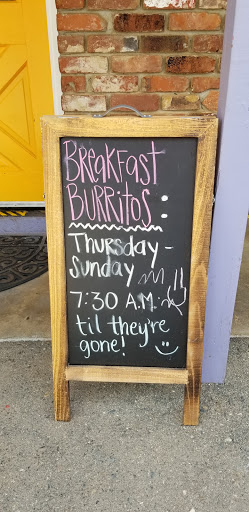 BREAKFAST
BURRITOS:
Thursday -
Sunday
7:30 A.M. -
til they're
gone!